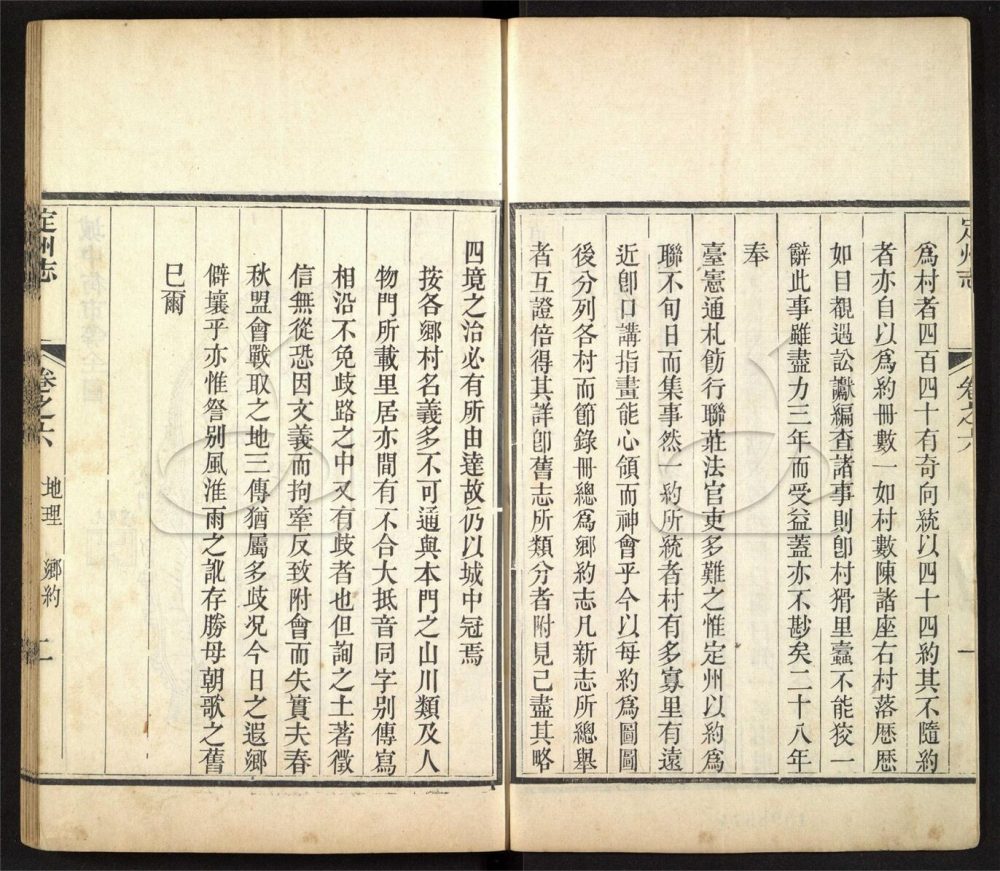 爲村者四百四十有奇向統以四十四約其不隨約
者亦自以爲約冊數一如村數陳諸座右村落歷歷
如目覩遇訟讞編查諸事則卽村猾里蠹不能狡一
辭此事雖盡力三年而受益蓋亦不尠矣二十八年
奉
臺憲通札飭行聯莊法官吏多難之惟定州以約爲
聯不旬日而集事然一約所統者村有多寡里有遠
近卽口講指畫能心領而神會乎今以每約爲圖圖
後分列各村而節錄冊總爲鄉約志凡新志所總舉
者互證倍得其詳卽舊志所類分者附見已盡其略
定州志
卷之六
一
四境之治必有所由達故仍以城中冠焉
按各鄉村名義多不可通與本門之山川類及人
物門所載里居亦間有不合大抵音同字別傳寫
相沿不免歧路之中又有歧者也但詢之土著徵
信無從恐因文義而拘牽反致附會而失實夫春
秋盟會戰取之地三傳猶屬多歧况今日之遐鄉
僻壤乎亦惟詧别風淮雨之訛存勝母朝歌之舊
巳爾
定州志
卷之六
地理
鄉約
二